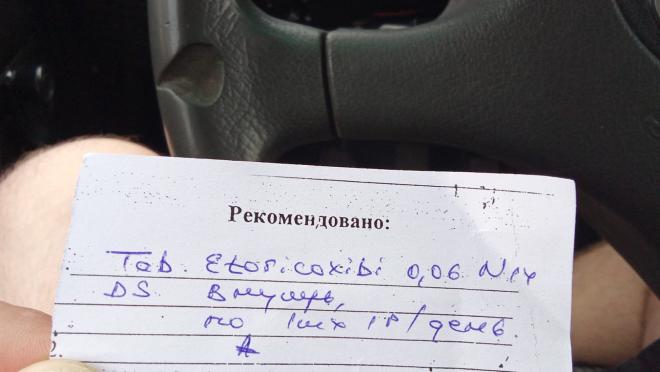 Рекомендовано:
Tab. Etoricoxibi 0,06 N14
DS. Внутрь,
по 1шт 1р/день.